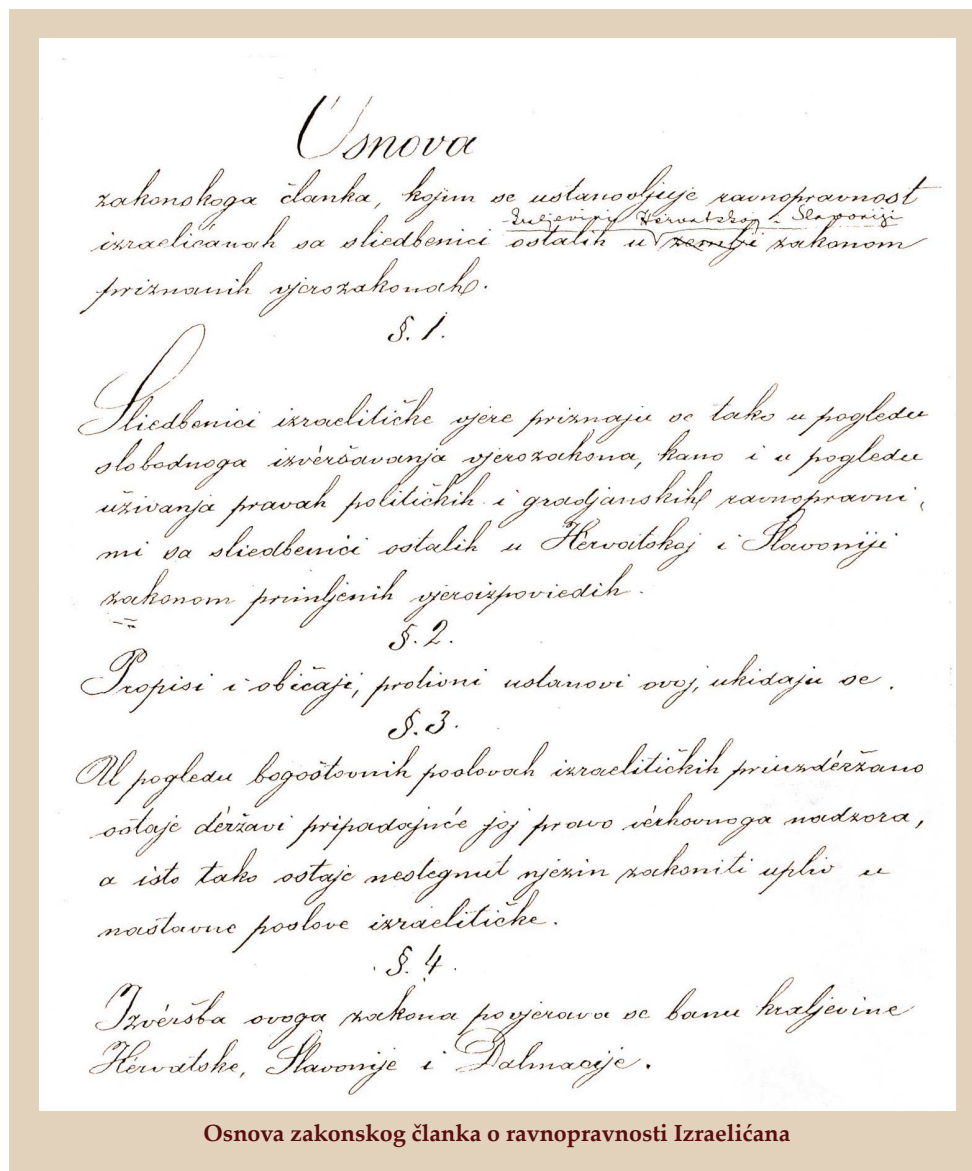 Osnova
zakonskoga članka, kojim se ustanovljuje ravnopravnost
kraljevini Hèrvatskoj i Slavoniji
izraelićanah sa sliedbenici ostalih u zemlji zakonom
priznanih vjerozakonah.
§. 1.
Sliedbenici izraelitičke vjere priznaju se tako u pogledu
slobodnoga izvèršavanja vjerozakona, kano i u pogledu
uživanja pravah političkih i gradjanskih ravnopravni-
mi sa sliedbenici ostalih u Hèrvatskoj i Slavoniji
zakonom primljenih vjeroizpoviedih.
§. 2.
Propisi i običaji, protivni ustanovi ovoj, ukidaju se.
§. 3.
U pogledu bogoštovnih poslovah izraelitičkih priuzdèržano
ostaje dèržavi pripadajuće joj pravo vèrhovnoga nadzora,
a isto tako ostaje nestegnut njezin zakoniti upliv u
nastavne poslove izraelitičke.
§. 4.
Izvèršba ovoga zakona povjerava se banu kraljevine
Hèrvatske, Slavonije i Dalmacije.
Osnova zakonskog članka o ravnopravnosti Izraelićana